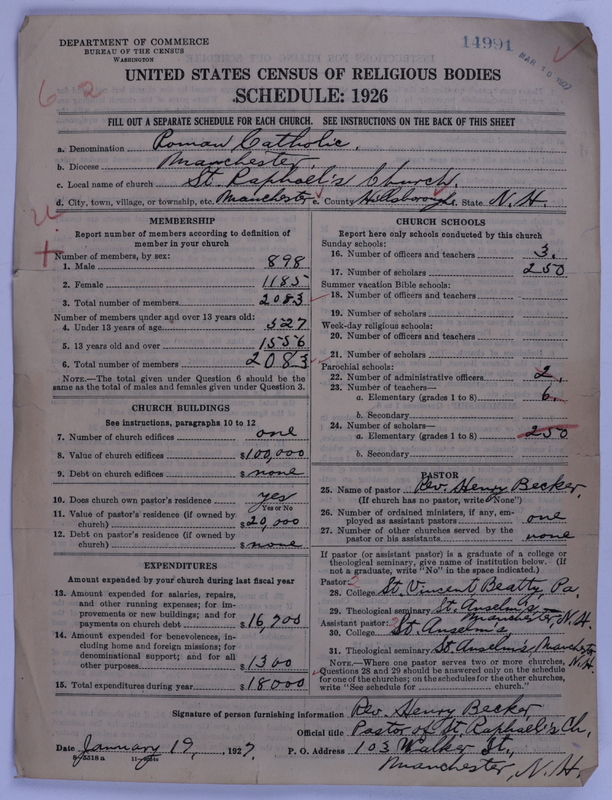 DEPARTMENT OF COMMERCE
BUREAU OF THE CENSUS
WASHINGTON
14991
MAR 10 1927
UNITED STATES CENSUS OF RELIGIOUS BODIES
SCHEDULE: 1926
FILL OUT A SEPARATE SCHEDULE FOR EACH CHURCH. SEE INSTRUCTIONS ON THE BACK OF THIS SHEET
a. Denomination Roman Catholic.
b. Diocese Manchester.
c. Local name of church St. Raphael's Church.
d. City, town, village, or township, etc. Manchester. e. County Hillsborough. f. State N. H.
MEMBERSHIP
Report number of members according to definition of
member in your church
Number of members, by sex:
1. Male 898
2. Female 1185
3. Total number of members 2083
Number of members under and over 13 years old:
4. Under 13 years of age 527
5. 13 years old and over 1556
6. Total number of members 2083
NOTE.—The total given under Question 6 should be the
same as the total of males and females given under Question 3.
CHURCH BUILDINGS
See instructions, paragraphs 10 to 12
7. Number of church edifices one
8. Value of church edifices $100,000
9. Debt on church edifices $ none
10. Does church own pastor's residence yes
Yes or No
11. Value of pastor's residence (if owned by
church) $20,000
12. Debt on pastor's residence (if owned by
church) $ none
EXPENDITURES
Amount expended by your church during last fiscal year
13. Amount expended for salaries, repairs,
and other running expenses; for im-
provements or new buildings; and for
payments on church debt $16,700
14. Amount expended for benevolences, in-
cluding home and foreign missions; for
denominational support; and for all
other purposes $1300
15. Total expenditures during year $18000
CHURCH SCHOOLS
Report here only schools conducted by this church
Sunday schools:
16. Number of officers and teachers 3.
17. Number of scholars 250
Summer vacation Bible schools:
18. Number of officers and teachers
19. Number of scholars
Week-day religious schools:
20. Number of officers and teachers
21. Number of scholars
Parochial schools:
22. Number of administrative officers 2.
23. Number of teachers—
a. Elementary (grades 1 to 8) 6.
b. Secondary
24. Number of scholars—
a. Elementary (grades 1 to 8) 250
b. Secondary
PASTOR
25. Name of pastor Rev. Henry Becker,
(If church has no pastor, write "None")
26. Number of ordained ministers, if any, em-
ployed as assistant pastors one
27. Number of other churches served by the
pastor or his assistants none
If pastor (or assistant pastor) is a graduate of a college or
theological seminary, give name of institution below. (If
not a graduate, write "No" in the space indicated.)
Pastor:
28. College St. Vincent, Beatty Pa.
29. Theological seminary St. Anselm's Manchester, N. H.
Assistant pastor:
30. College St. Anselm's
31. Theological seminary St. Anselm's, Manchester N. H.
NOTE.—Where one pastor serves two or more churches,
Questions 28 and 29 should be answered only on the schedule
for one of the churches; on the schedules for the other churches,
write "See schedule for church."
Signature of person furnishing information Rev. Henry Becker,
Official title Pastor of St. Raphael's Ch,
Date January 19, 1927. P. O. Address 103 Walker St.,
Manchester, N. H.
8-5518 a